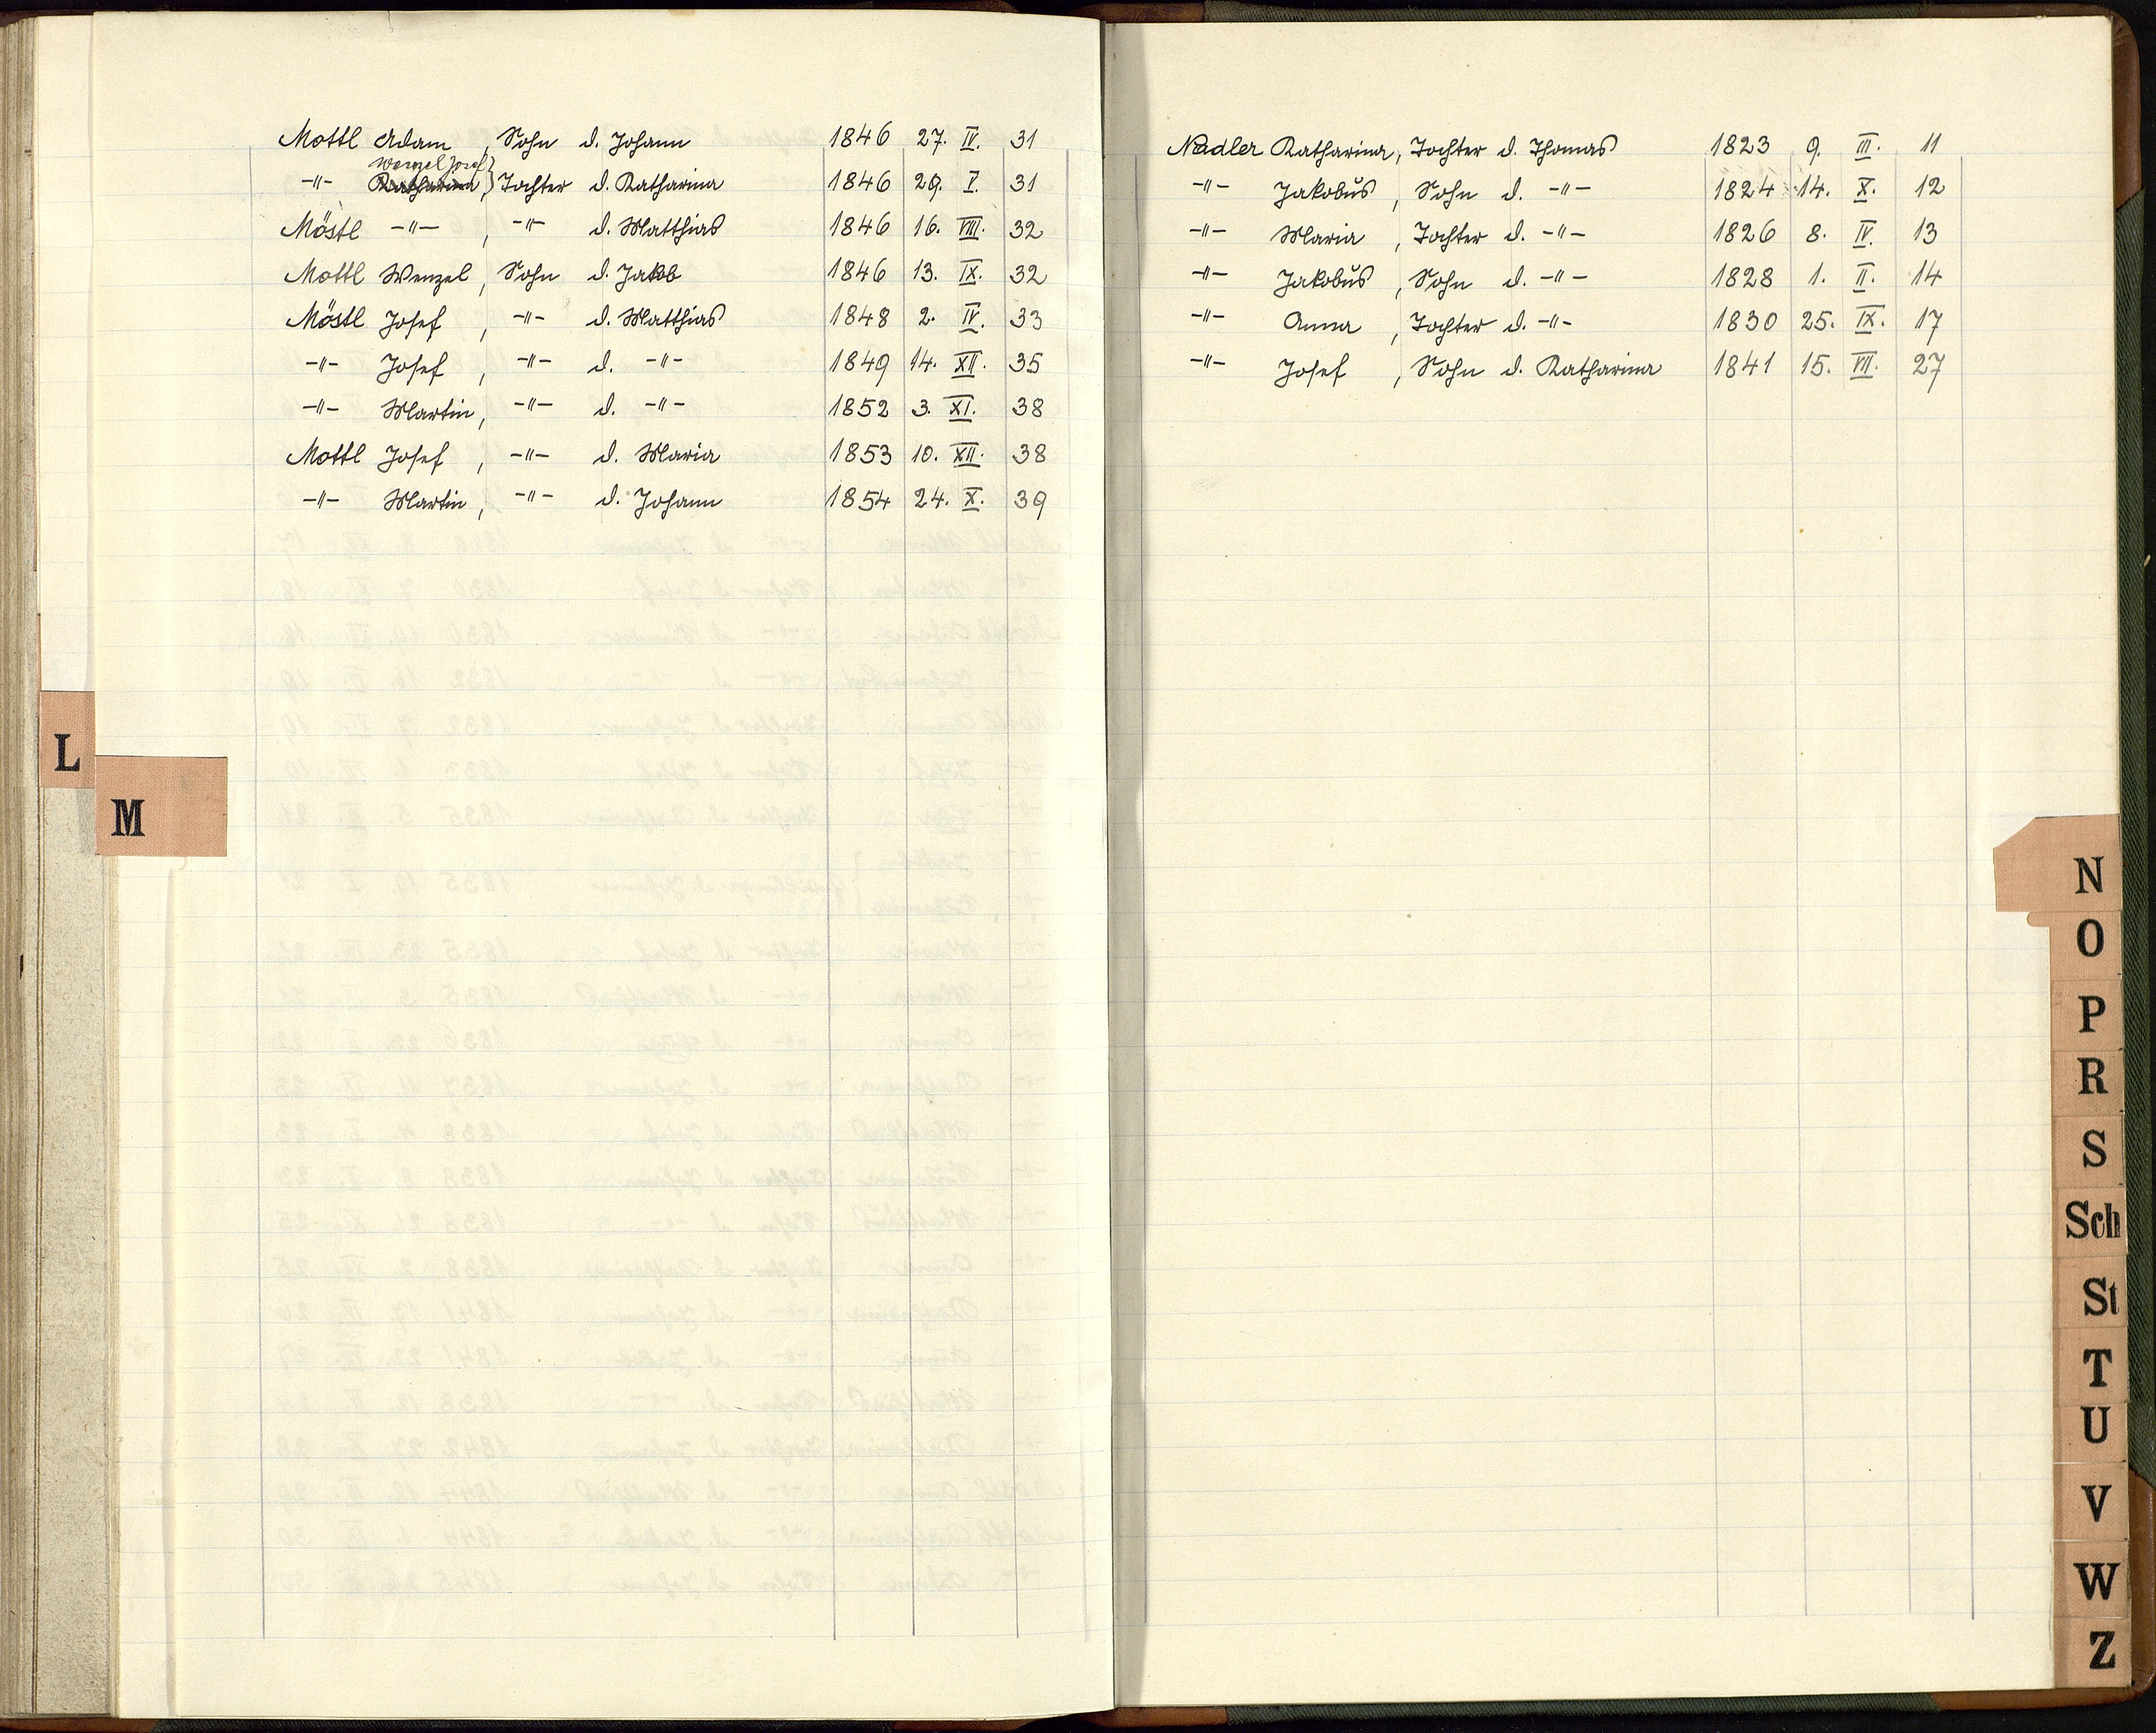 Mottl Adam, Sohn d. Johann 1846 27. IV. 31
Wenzel Josef
-"- Katharina, } Tochter d. Katharina 1846 29. V. 31
Möstl -"-, -"- d. Matthias 1846 16. VIII. 32
Mottl Wenzel, Sohn d. Jakob 1846 13. IX. 32
Möstl Josef, -"- d. Matthias 1848 2. IV. 33
-"- Josef, -"- d. -"- 1849 14. XII. 35
-"- Martin, -"- d. -"- 1852 3. XI. 38
Mottl Josef, -"- d. Maria 1853 10. XII. 38
-"- Martin, -"- d. Johann 1854 24. X. 39
L
M
Nadler Katharina, Tochter d. Thomas 1823 9. III. 11
-"- Jakobus, Sohn d. -"- 1824 14. X. 12
-"- Maria, Tochter d. -"- 1826 8. IV. 13
-"- Jakobus, Sohn d. -"- 1828 1. II. 14
-"- Anna, Tochter d. -"- 1830 25. IX. 17
-"- Josef, Sohn d. Katharina 1841 15. VII. 27
N
O
P
R
S
Sch
St
T
U
V
W
Z